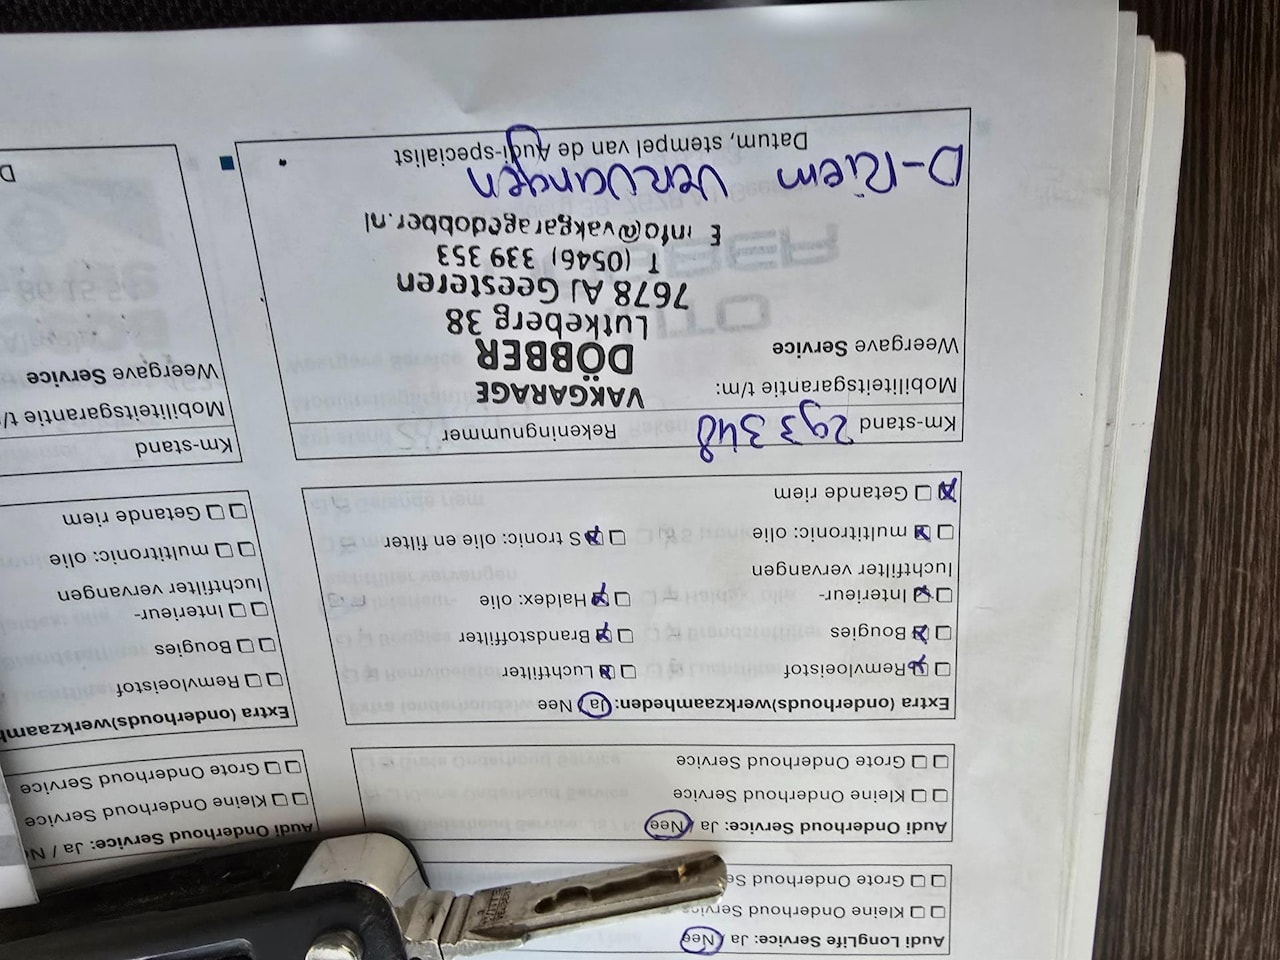 Audi LongLife Service: Ja / Nee
Kleine Onderhoud Service
Grote Onderhoud Se
Audi Onderhoud Service: Ja / Nee
Kleine Onderhoud Service
Grote Onderhoud Service
Extra (onderhouds)werkzaamheden: Ja / Nee
Remvloeistof Luchtfilter
Bougies Brandstoffilter
Interieur- Haldex: olie
luchtfilter vervangen
multitronic: olie S tronic: olie en filter
Getande riem
Km-stand 293 348 Rekeningnummer
Mobiliteitsgarantie t/m:
Weergave Service
VAKGARAGE
DÖBBER
Lutkeberg 38
7678 AJ Geesteren
T (0546) 339 353
E info@vakgaragedobber.nl
D-Riem vervangen
Datum, stempel van de Audi-specialist
Audi Onderhoud Service: Ja / N
Kleine Onderhoud Service
Grote Onderhoud Service
Extra (onderhouds)werkzaamh
Remvloeistof
Bougies
Interieur-
luchtfilter vervangen
multitronic: olie
Getande riem
Km-stand
Mobiliteitsgarantie t/
Weergave Service
D